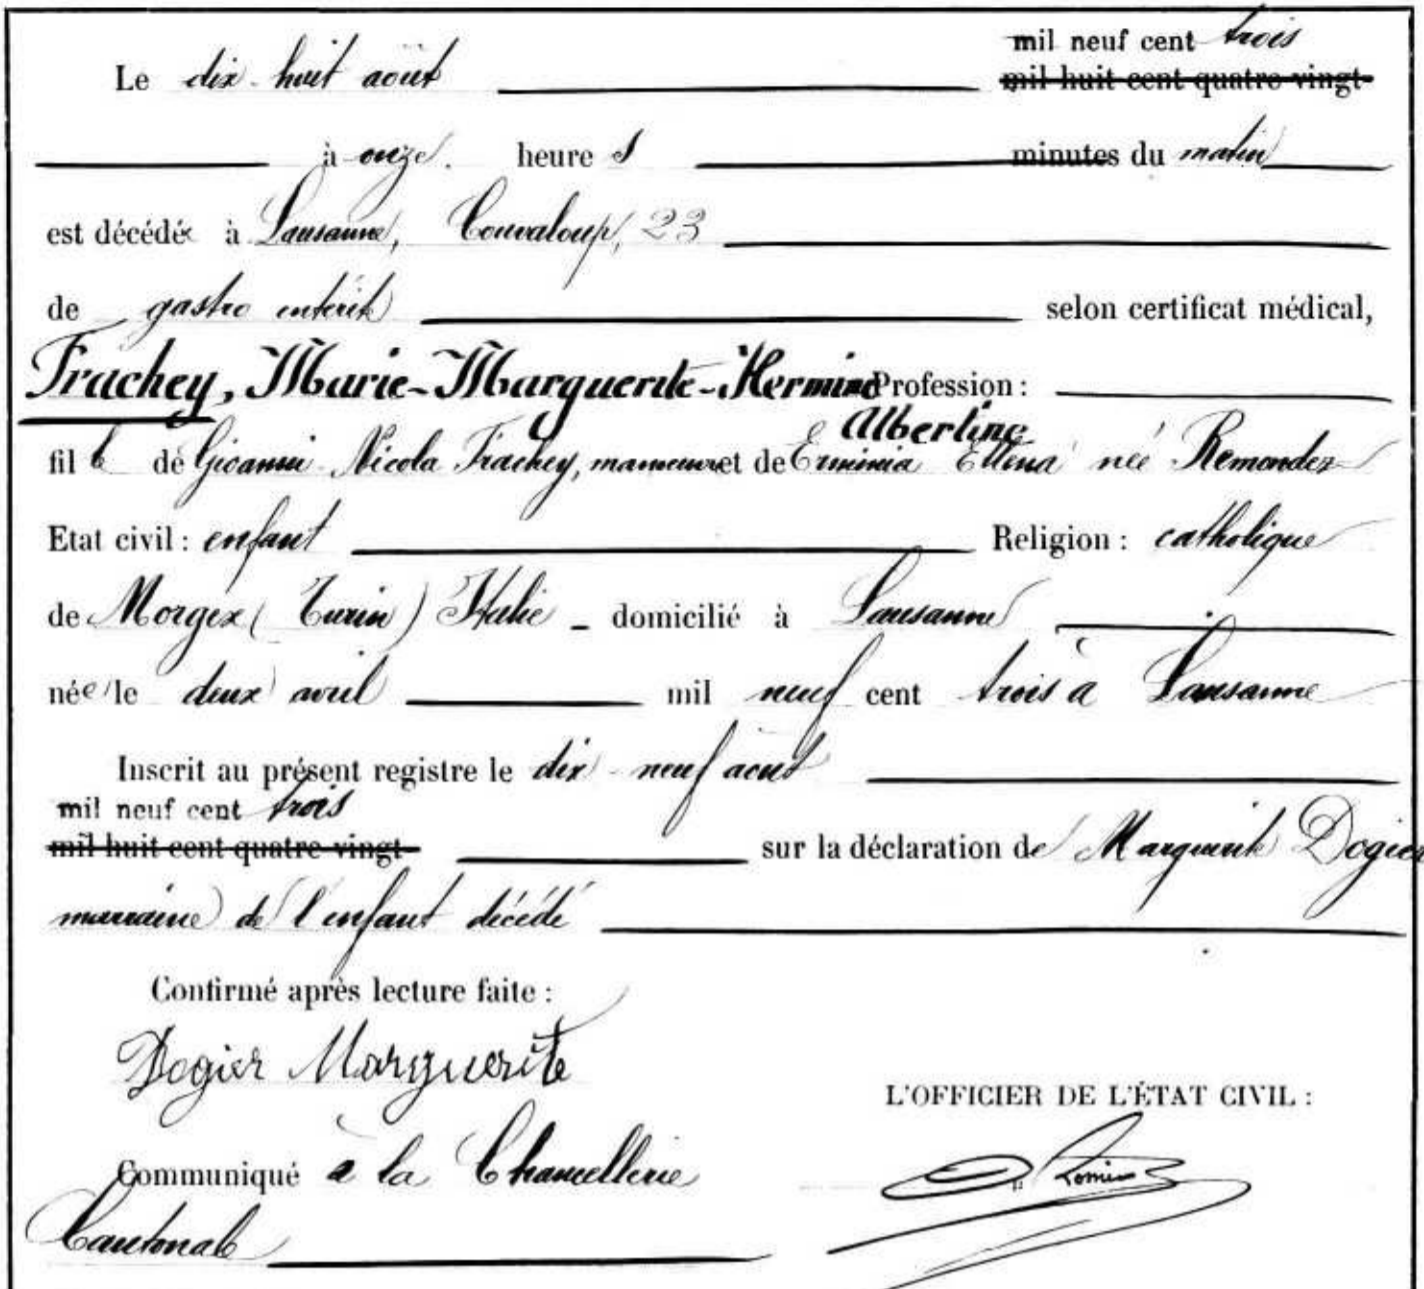 mil neuf cent trois
Le dix-huit août mil huit cent quatre-vingt-
à onze heures minutes du matin
est décédée à Lausanne, Couvaloup, 23
de gastro entérite selon certificat médical,
Frachey, Marie-Marguerite-Hermine Profession :
Albertine
fille de Giovanni Nicola Frachey, manoeuvre et de Erminia Ettena née Remondez
Etat civil : enfant Religion : catholique
de Morgex (Turin) Italie - domicilié à Lausanne
née le deux avril mil neuf cent trois à Lausanne
Inscrit au présent registre le dix-neuf août
mil neuf cent trois
mil huit cent quatre-vingt- sur la déclaration de Marguerite Dogier
marraine de l'enfant décédé
Confirmé après lecture faite :
Dogier Marguerite
L'OFFICIER DE L'ÉTAT CIVIL :
Communiqué à la Chancellerie
Cantonale